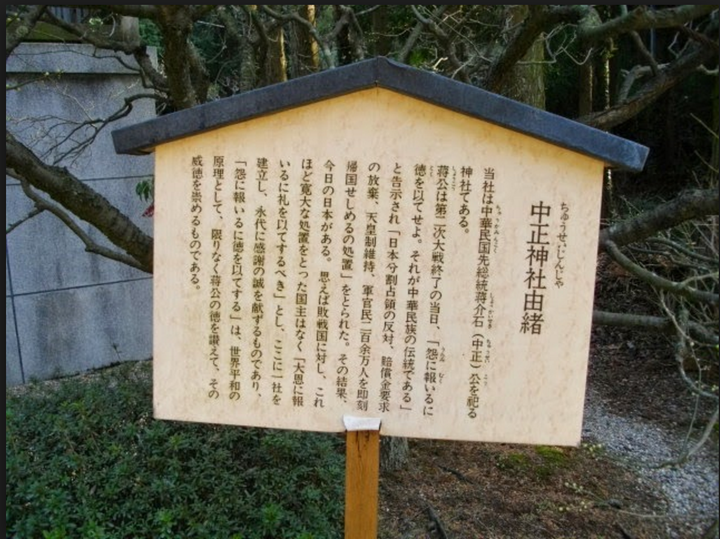 中正神社由緒
ちゅうせいじんじゃ
当社は中華民国先総統蒋介石（中正）公を祀る
神社である。
蒋公は第二次大戦終了の当日、「怨に報いるに
徳を以てせよ。それが中華民族の伝統である」
と告示され「日本分割占領の反対、賠償金要求
の放棄、天皇制維持、軍官民二百余万人を即刻
帰国せしめるの処置」をとられた。その結果、
今日の日本がある。思えば敗戦国に対し、これ
ほど寛大な処置をとった国主はなく「大恩に報
いるに礼を以てするべき」とし、ここに一社を
建立し、永代に感謝の誠を献ずるものであり、
「怨に報いるに徳を以てする」は、世界平和の
原理として、限りなく蒋公の徳を讃えて、その
威徳を崇めるものである。